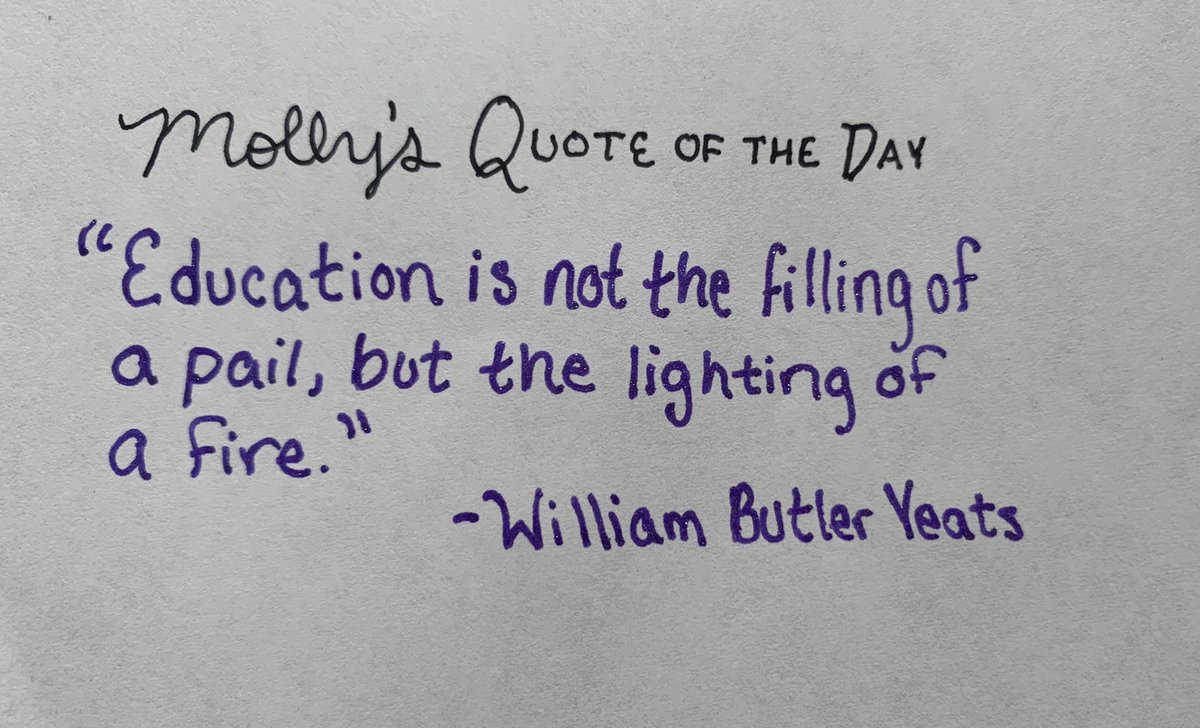 Molly's Quote of the Day
"Education is not the filling of
a pail, but the lighting of
a fire."
-William Butler Yeats